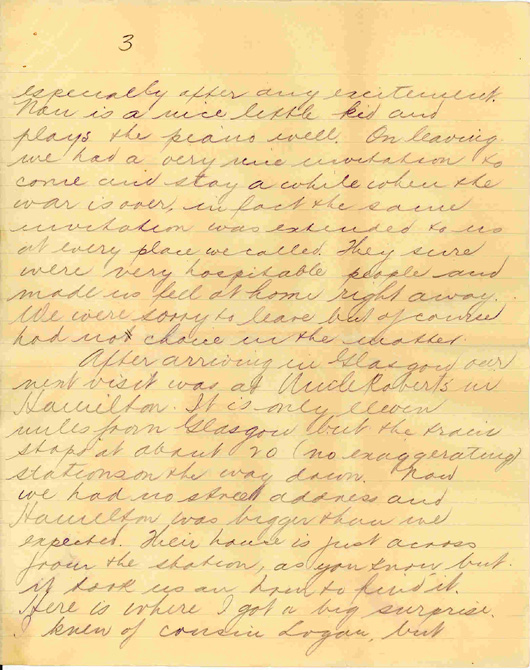 3
especially after any excitement.
Nan is a nice little kid and
plays the piano well. On leaving
we had a very nice invitation to
come and stay a while when the
war is over, in fact the same
invitation was extended to us
at every place we called. They sure
were very hospitable people and
made us fell at home right away.
We were sorry to leave but of course
had not choice in the matter.
After arriving in Glasgow our
next visit was at Uncle Robert's in
Hamilton. It is only eleven
miles from Glasgow but the train
stops at about 20 (no exaggerating)
stations on the way down. Now
we had no street address and
Hamilton was bigger than we
expected. Their house is just across
from the station, as you know but
it took us an hour to find it.
Here is where I got a big surprise.
knew of cousin Logan, but